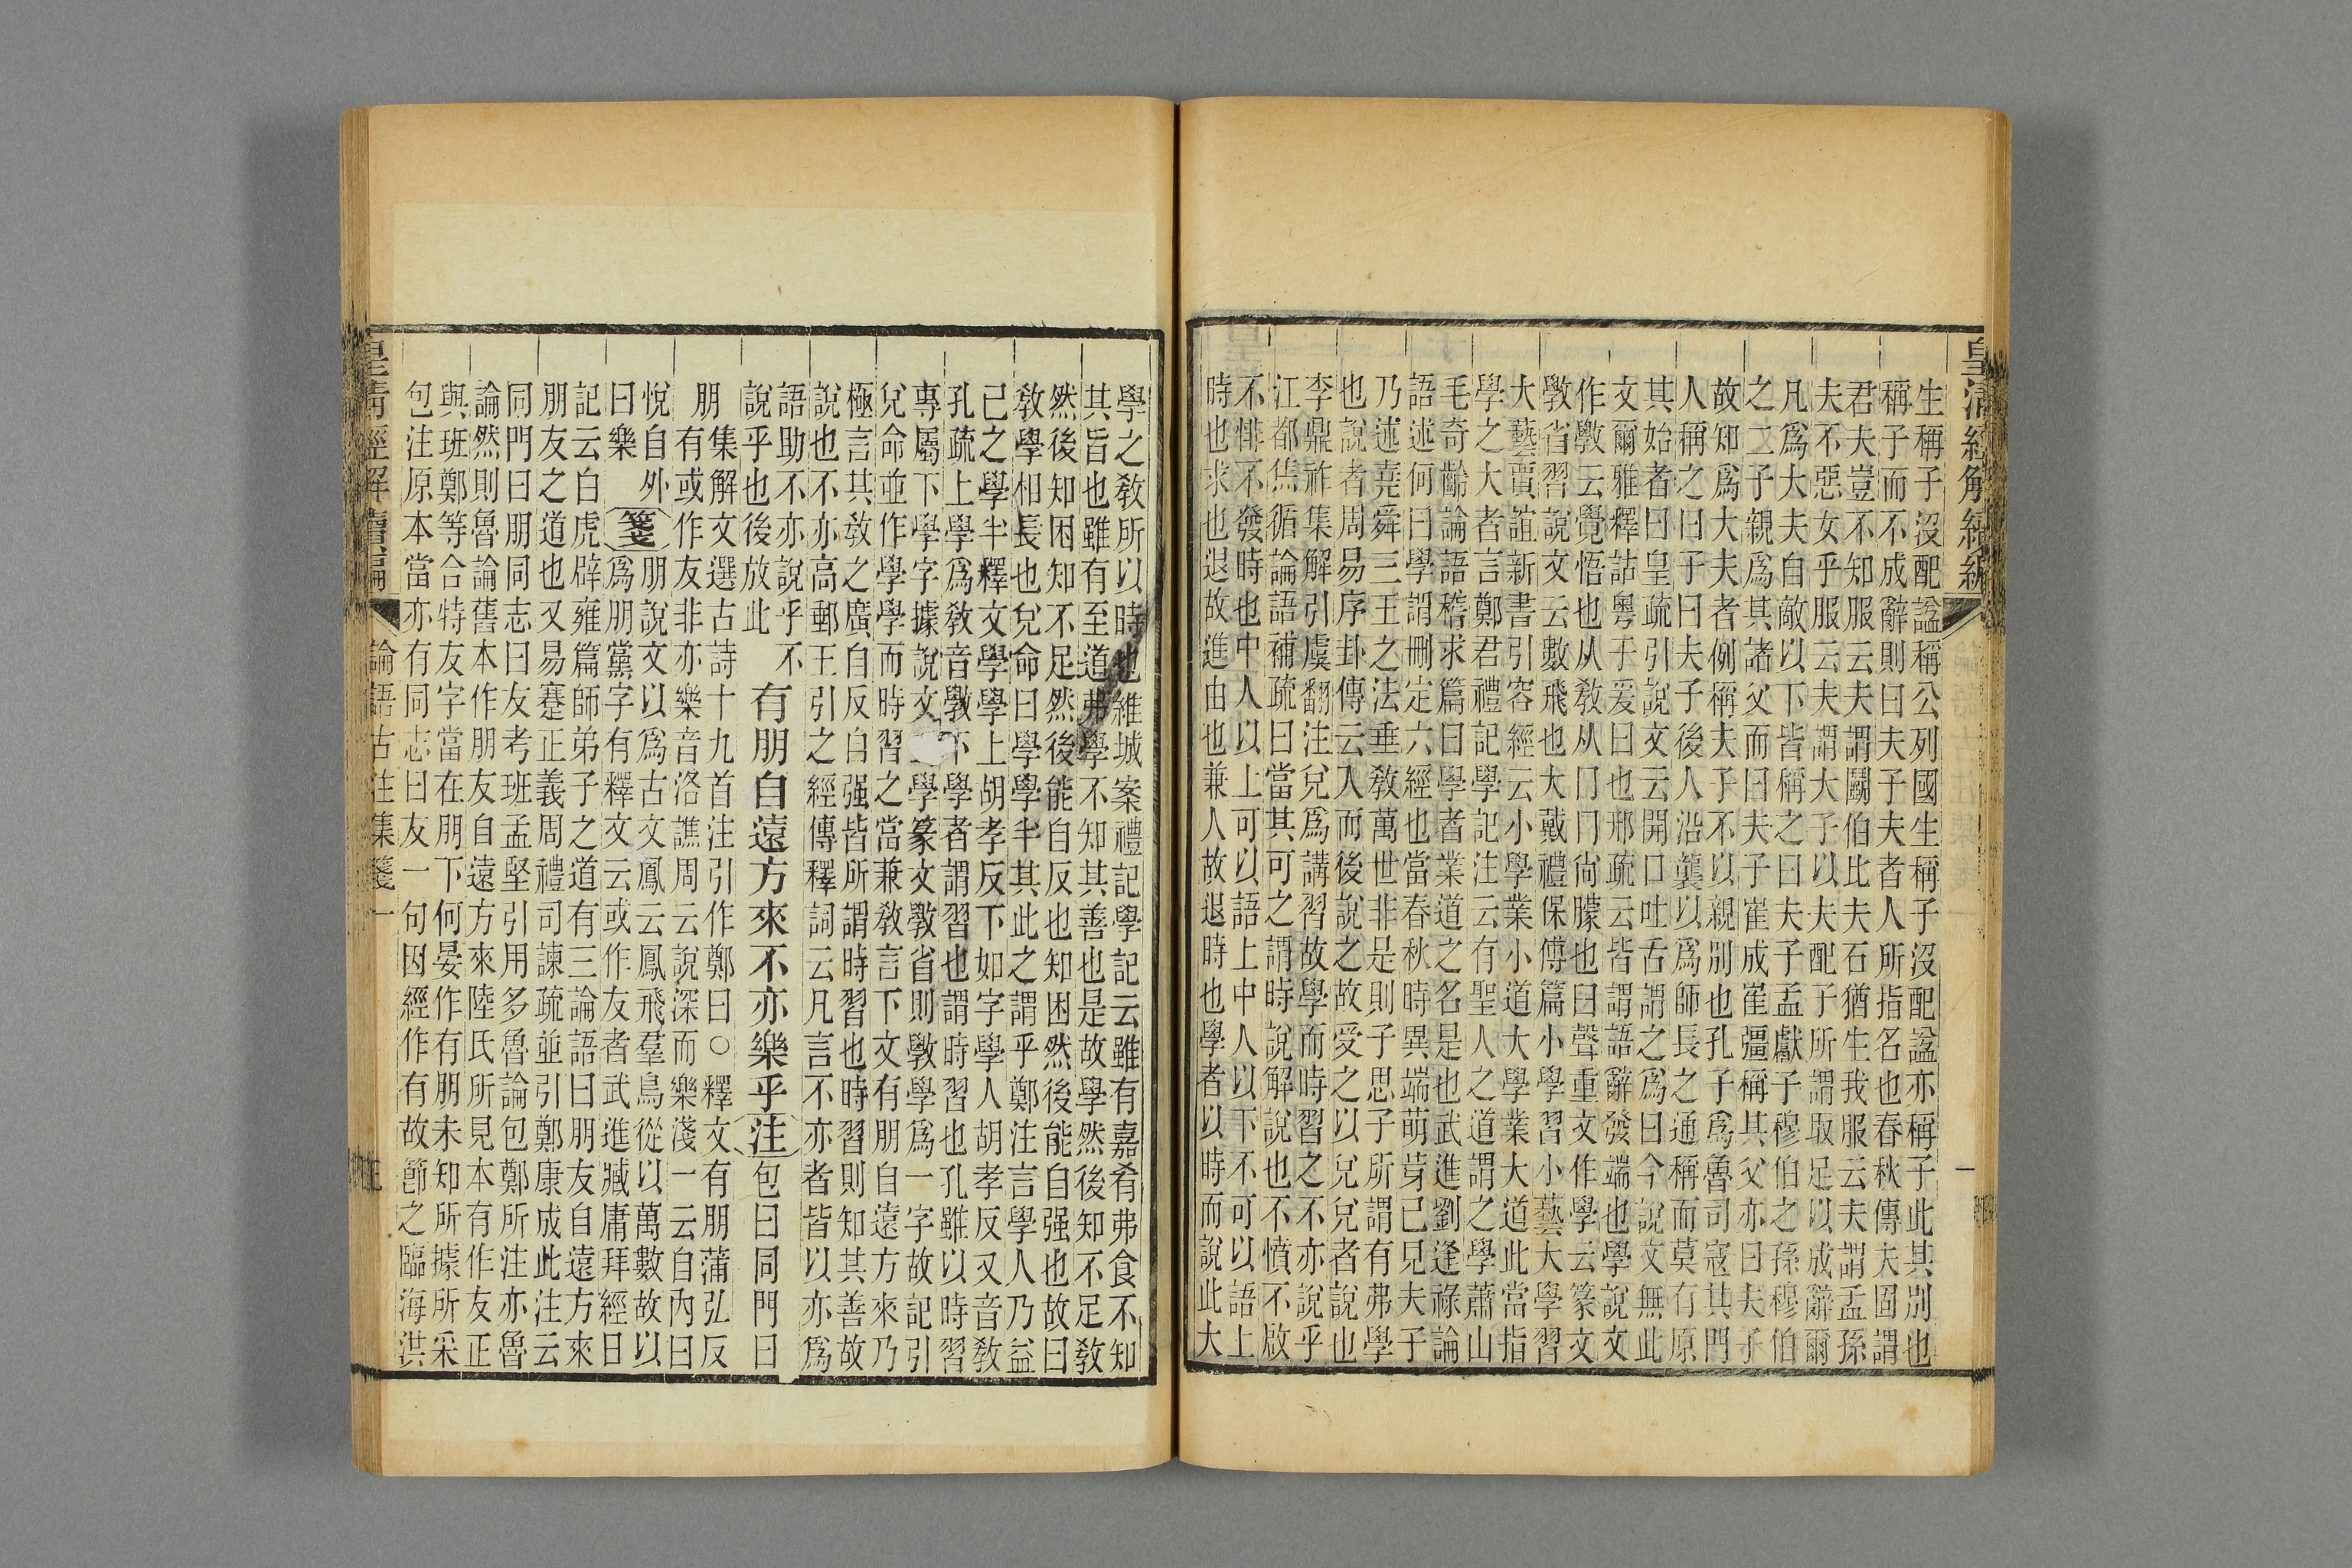 皇清經解續編
生稱子沒配諡稱公列國生稱子沒配諡亦稱子此其別也
稱子而不成辭則曰夫子夫者人所指名也春秋傳夫固謂
君夫豈不知服云夫謂鬬伯比夫石猶生我服云夫謂孟孫
夫不惡女乎服云夫謂大子以大配子所謂取足以成辭爾
凡爲大夫自敵以下皆稱之曰夫子孟獻子穆伯之孫穆伯
之二子親爲其諸父而曰夫子崔成崔彊稱其父亦曰夫子
故知爲大夫者例稱夫子不以親別也孔子爲魯司寇其門
人稱之曰子曰夫子後人沿襲以爲師長之通稱而莫有原
其始者曰皇疏引說文云開口吐舌謂之爲曰今說文無此
文爾雅釋詁粤于爰曰也邢疏云皆謂語辭發端也學說文
作斆云覺悟也从敎从冂冂尙朦也𦥑聲重文作學云篆文
斆省習說文云數飛也大戴禮保傅篇小學習小藝大學習
大藝賈誼新書引容經云小學業小道大學業大道此當指
學之大者言鄭君禮記學記注云有聖人之道謂之學蕭山
毛奇齡論語稽求篇曰學者業道之名是也武進劉逢祿論
語述何曰學謂刪定六經也當春秋時異端萌芽已兄夫子
乃述堯舜三王之法垂敎萬世非是則子思子所謂有弗學
也說者周易序卦傳云入而後說之故受之以兌兌者說也
李鼎祚集解引虞翻注兌爲講習故學而時習之不亦說乎
江都焦循論語補疏曰當其可之謂時說解說也不憤不啟
不悱不發時也中人以上可以語上中人以下不可以語上
時也求也退故進由也兼人故退時也學者以時而說此大
學之敎所以時也維城案禮記學記云雖有嘉肴弗食不知
其旨也雖有至道弗學不知其善也是故學然後知不足敎
然後知困知不足然後能自反也知困然後能自强也故曰
敎學相長也兌命曰學學半其此之謂乎鄭注言學人乃益
己之學半釋文學學上胡孝反下如字學人胡孝反又音敎
孔疏上學爲敎音斆下學者謂習也謂時習也孔雖以時習
專屬下學字據說文學篆文斆省則斆學爲一字故記引
兌命並作學學而時習之當兼敎言下文有朋自遠方來乃
極言其敎之廣自反自强皆所謂時習也時習則知其善故
說也不亦高郵王引之經傳釋詞云凡言不亦者皆以亦爲
語助不亦說乎不
說乎也後放此
有朋自遠方來不亦樂乎注包曰同門曰
朋集解文選古詩十九首注引作鄭曰○釋文有朋蒲弘反
有或作友非亦樂音洛譙周云說深而樂淺一云自內曰
悅自外
曰樂
箋朋說文以爲古文鳳云鳳飛羣鳥從以萬數故以
爲朋黨字有釋文云或作友者武進臧庸拜經日
記云白虎辟雍篇師弟子之道有三論語曰朋友自遠方來
朋友之道也又易蹇正義周禮司諫疏並引鄭康成此注云
同門曰朋同志曰友考班孟堅引用多魯論包鄭所注亦魯
論然則魯論舊本作朋友自遠方來陸氏所見本有作友正
與班鄭等合特友字當在朋下何晏作有朋未知所據所采
包注原本當亦有同志曰友一句因經作有故節之臨海洪
皇清經解續編
論語古注集箋一